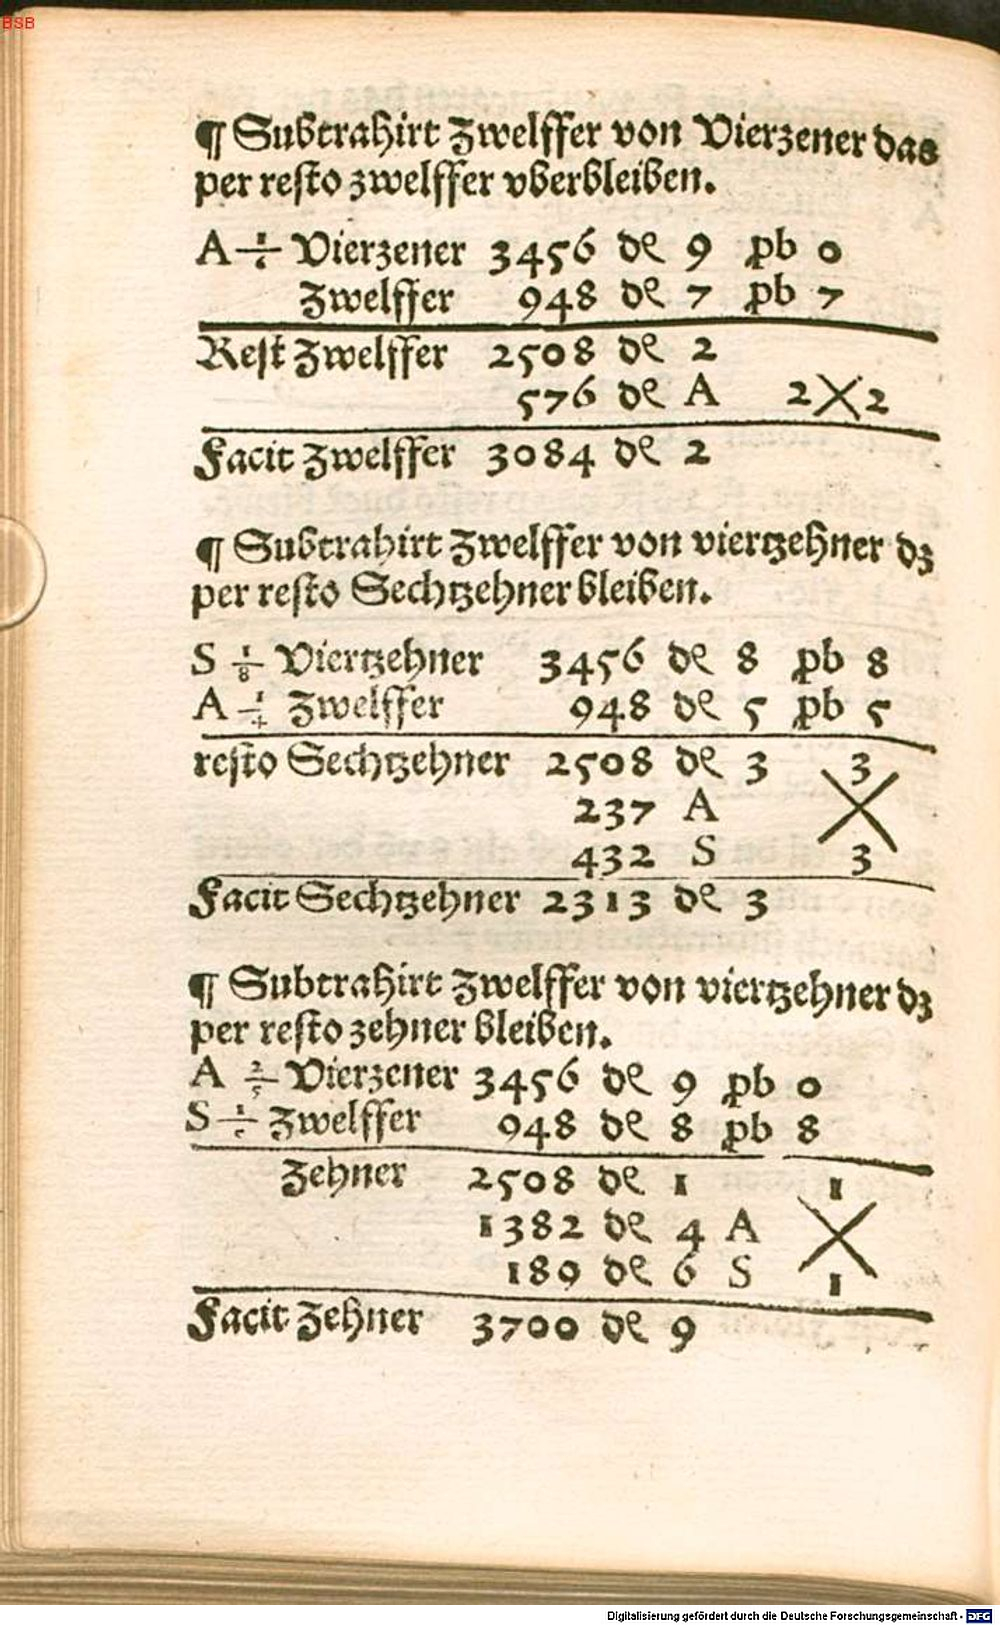 BSB
¶ Subtrahirt Zwelffer von Vierzener das
per resto zwelffer vberbleiben.
A 1/6 Vierzener 3456 de 9 pb 0
Zwelffer 948 de 7 pb 7
Rest Zwelffer 2508 de 2
576 de A 2 X 2
Facit Zwelffer 3084 de 2
¶ Subtrahirt Zwelffer von viertzehner dz
per resto Sechtzehner bleiben.
S 1/8 Viertzehner 3456 de 8 pb 8
A 1/4 Zwelffer 948 de 5 pb 5
resto Sechtzehner 2508 de 3 3
237 A
432 S 3
Facit Sechtzehner 2313 de 3
¶ Subtrahirt Zwelffer von viertzehner dz
per resto zehner bleiben.
A 2/5 Vierzener 3456 de 9 pb 0
S Zwelffer 948 de 8 pb 8
Zehner 2508 de 1 1
1382 de 4 A
189 de 6 S 1
Facit Zehner 3700 de 9
Digitalisierung gefördert durch die Deutsche Forschungsgemeinschaft - DFG